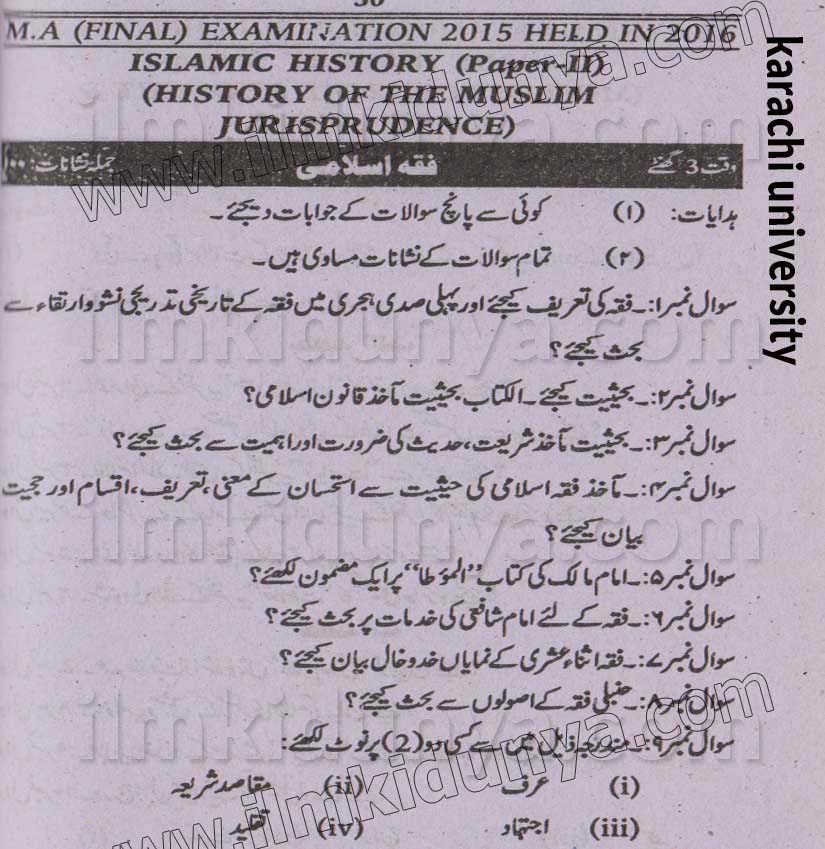 30
M.A (FINAL) EXAMINATION 2015 HELD IN 2016
ISLAMIC HISTORY (Paper-II)
(HISTORY OF THE MUSLIM
JURISPRUDENCE)
وقت 3 گھنٹے فقہ اسلامی جملہ نشانات ۱۰۰
ہدایات: (۱) کوئی سے پانچ سوالات کے جوابات دیجئے۔
(۲) تمام سوالات کے نشانات مساوی ہیں۔
سوال نمبر۱:۔ فقہ کی تعریف کیجئے اور پہلی صدی ہجری میں فقہ کے تاریخی تدریجی نشووارتقاء سے
بحث کیجئے؟
سوال نمبر۲:۔ بحیثیت کیجئے۔ الکتاب بحیثیت مآخذ قانون اسلامی؟
سوال نمبر۳:۔ بحیثیت مآخذ شریعت، حدیث کی ضرورت اور اہمیت سے بحث کیجئے؟
سوال نمبر۴:۔ مآخذ فقہ اسلامی کی حیثیت سے استحسان کے معنی، تعریف، اقسام اور حجیت
بیان کیجئے؟
سوال نمبر۵:۔ امام مالک کی کتاب ”المؤطا“ پر ایک مضمون لکھئے؟
سوال نمبر۶:۔ فقہ کے لئے امام شافعی کی خدمات پر بحث کیجئے؟
سوال نمبر۷:۔ فقہ اثناء عشری کے نمایاں خدوخال بیان کیجئے؟
سوال نمبر۸:۔ حنبلی فقہ کے اصولوں سے بحث کیجئے؟
سوال نمبر۹:۔ مندرجہ ذیل میں سے کسی دو (2) پر نوٹ لکھئے:
(i) عرف (ii) مقاصد شریعہ
(iii) اجتہاد (iv) تقلید
karachi university
www.ilmkidunya.com
ilmkidunya.com
ilmkidunya.com
ilmkidunya.com
ilmkidunya.com
www.ilmkidunya.com